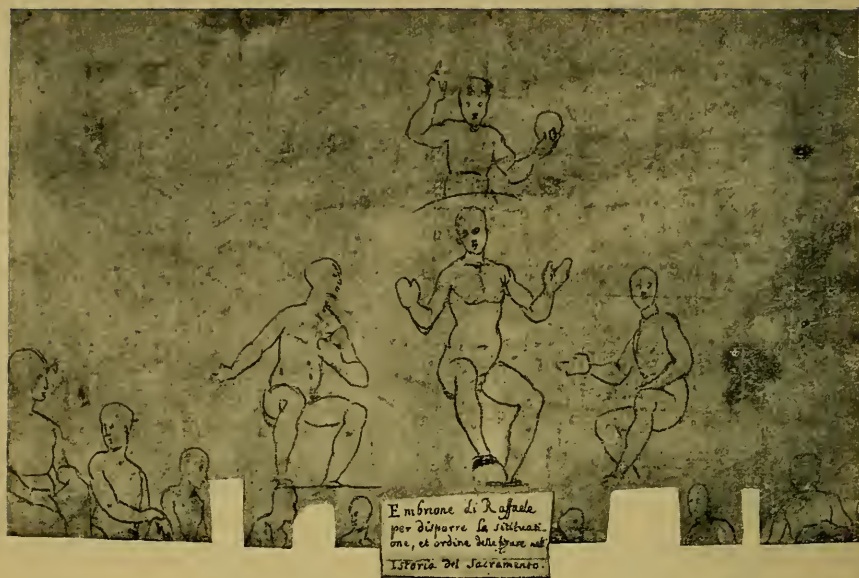 Embrione di Raffaele
per disporre la sitituati-
one, et ordine delle figure nell'
Istoria del Sacramento.